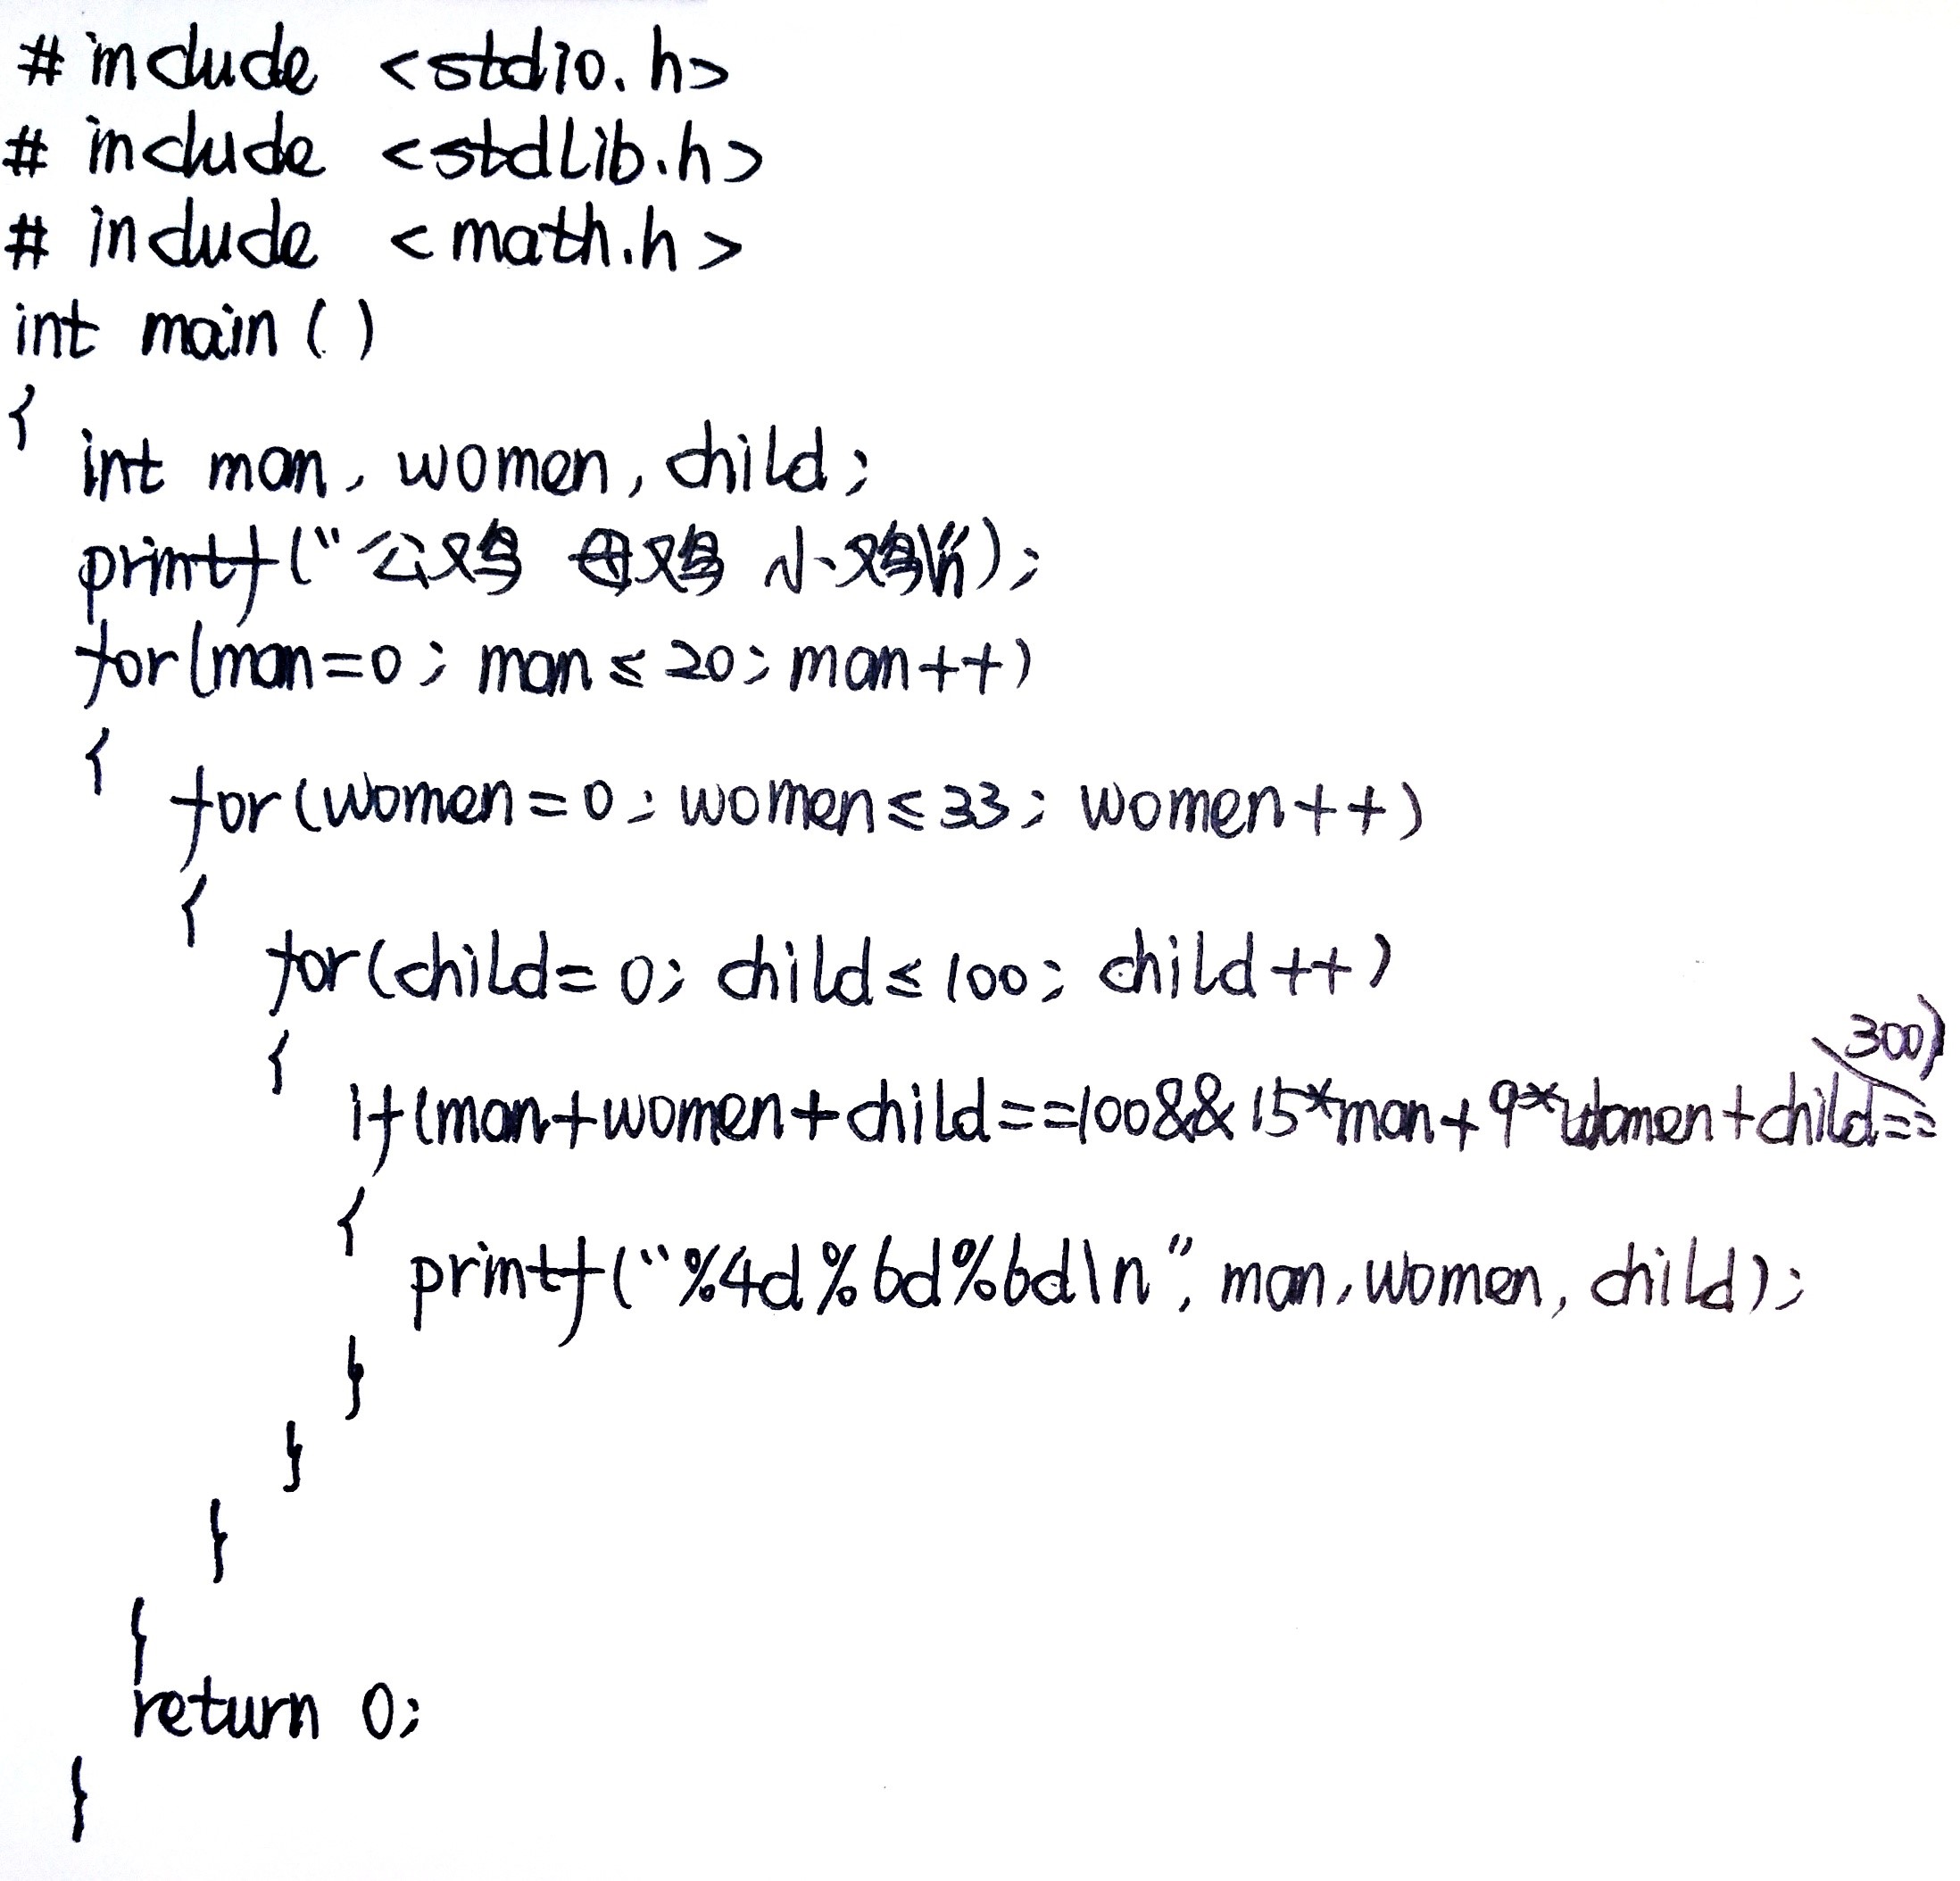 # include <stdio.h>
# include <stdLib.h>
# include <math.h>
int main()
{
int man, women, child;
printf("公鸡 母鸡 小鸡\n");
for(man=0; man≤20; man++)
{
for(women=0; women≤33; women++)
{
for(child=0; child≤100; child++)
{
if(man+women+child==100&&15*man+9*women+child==300)
{
printf("%4d%6d%6d\n", man, women, child);
}
}
}
}
return 0;
}